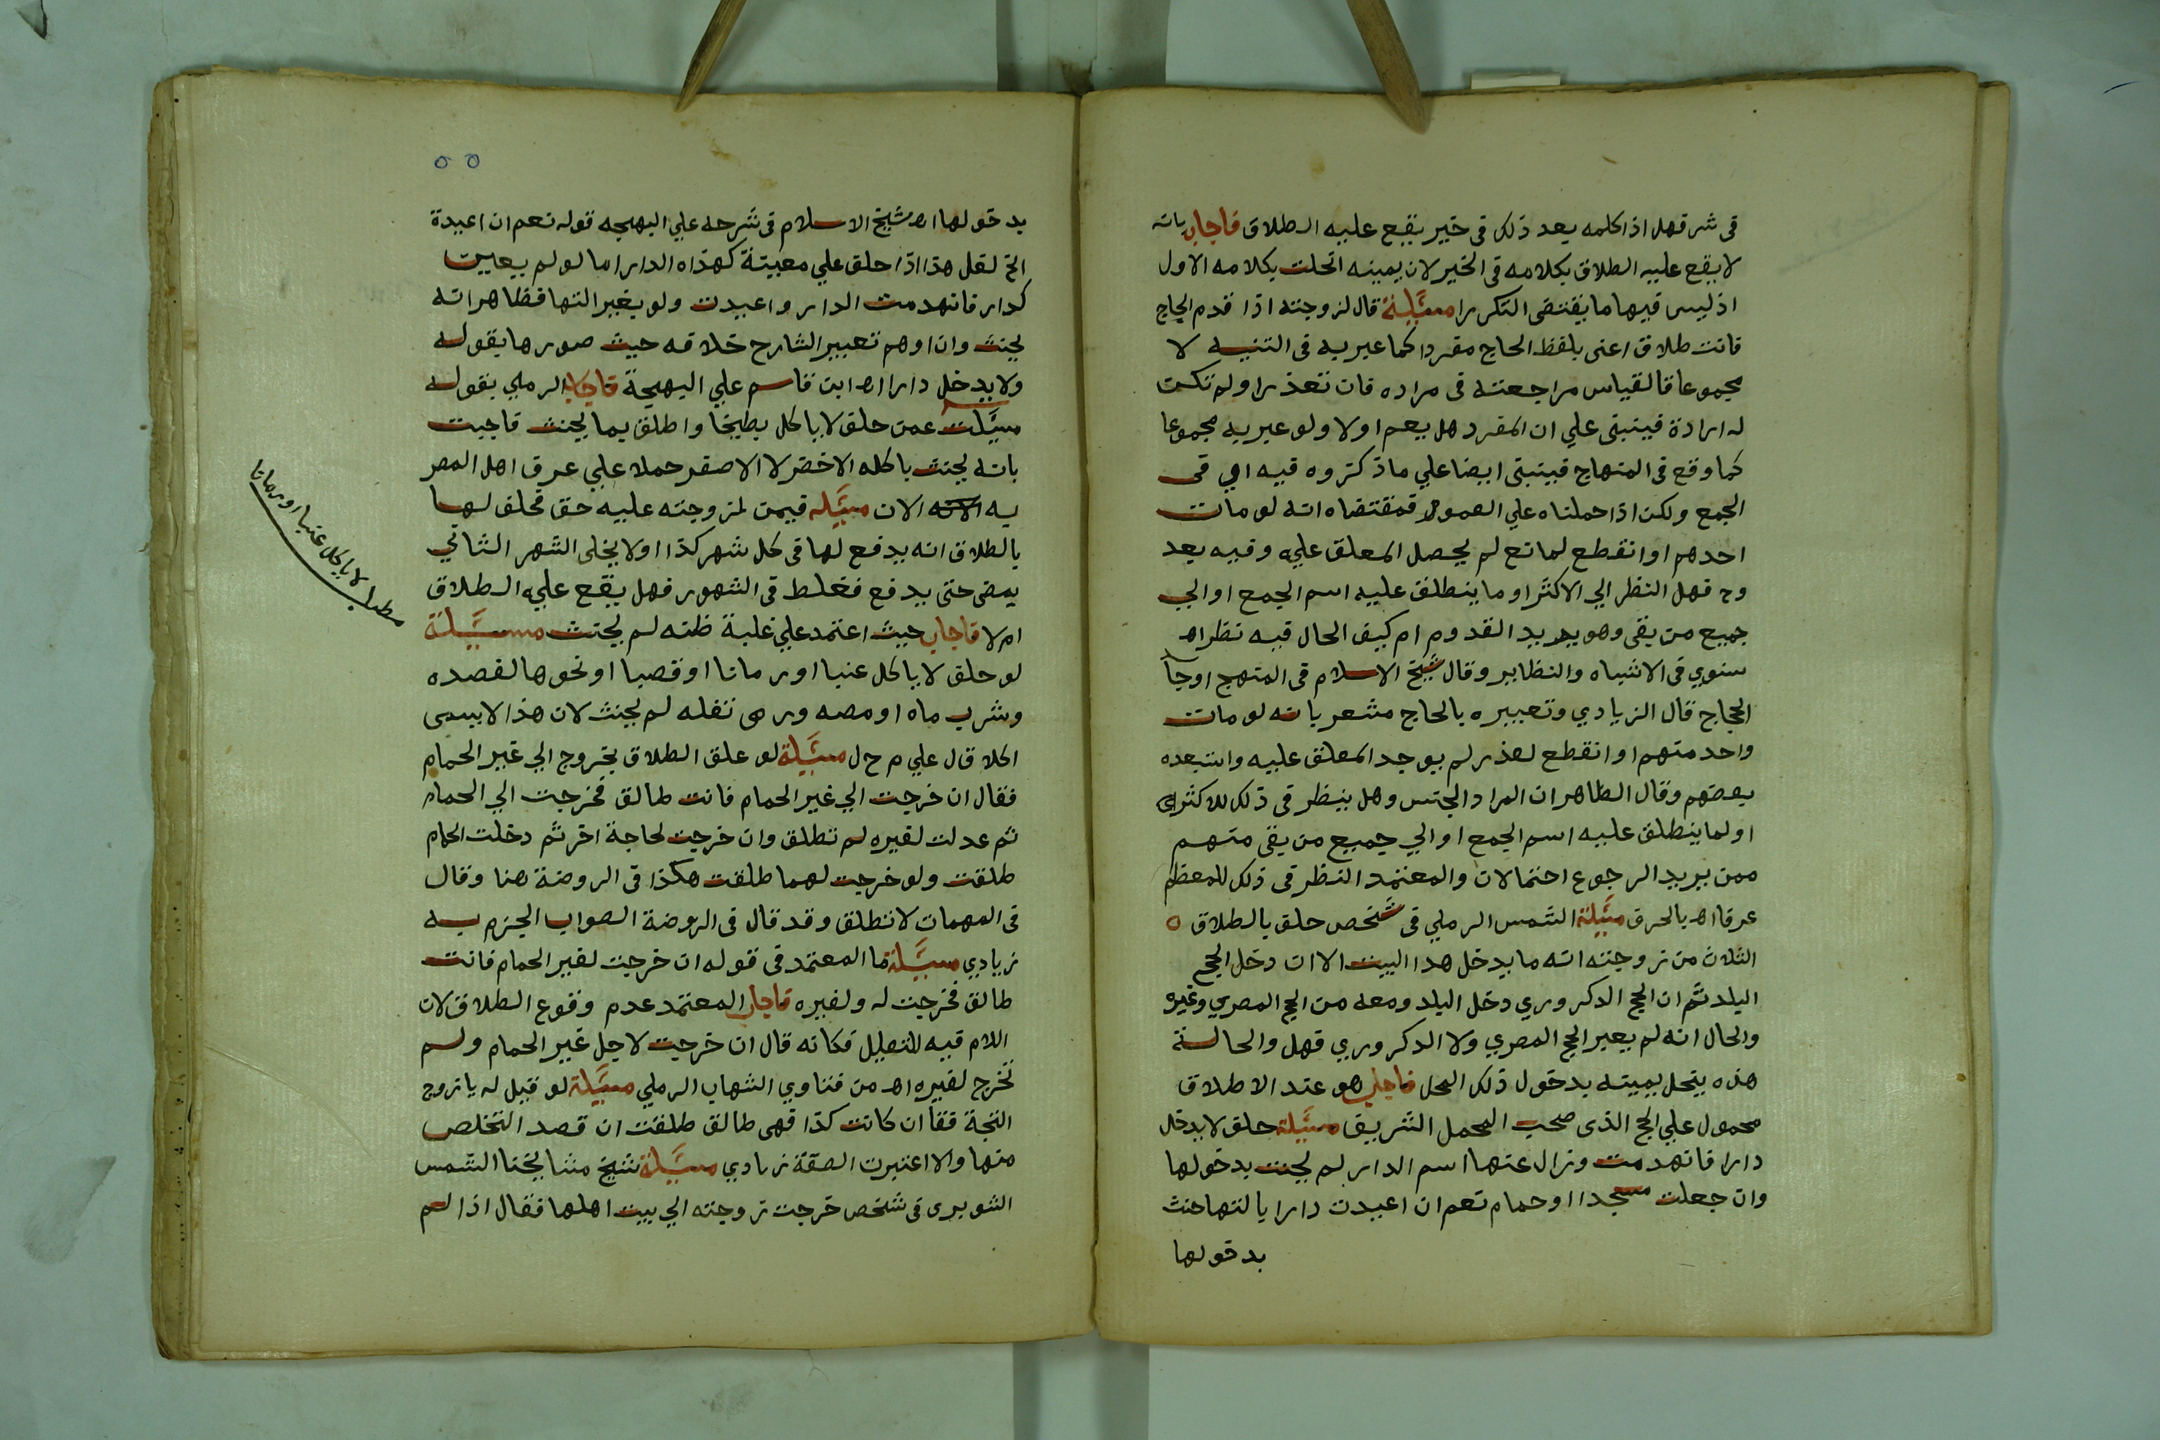 في شر فهل اذا كلمه بعد ذلك في خير يقع عليه الطلاق فاجاب بانه
لا يقع عليه الطلاق بكلامه في الخير لان يمينه انحلت بكلامه الاول
اذ ليس فيها ما يقتضي التكررا مسئلة قال لزوجته اذا قدم الحاج
فانت طلاق اعني بلفظ الحاج مفردا كما عبر به في التنبيه لا
مجموعا فالقياس مراجعته في مراده فان تعذرا ولم تكن
له ارادة فينبني علي ان المفرد هل يعم اولا ولو عبر به مجموعا
كما وقع في المنهاج فينبني ايضا علي ما ذكروه فيه اي في
الجمع ولكن اذا حملناه علي العموم فمقتضاه انه لو مات
احدهم او انقطع لمانع لم يحصل المعلق عليه وفيه بعد
وح فهل النظر الي الاكثر او ما ينطلق عليه اسم الجمع او الي
جميع من بقي وهو يريد القدوم ام كيف الحال فيه نظر اهـ
سنوي في الاشباه والنظاير وقال شيخ الاسلام في المنهج اوجا
الحجاج قال الزيادي وتعبيره بالحاج مشعر بانه لو مات
واحد منهم او انقطع لعذر لم يوجد المعلق عليه واستبعده
بعضهم وقال الظاهر ان المراد الجنس وهل ينظر في ذلك للاكثر اي
او لما ينطلق عليه اسم الجمع او الي جميع من بقي منهم
ممن يريد الرجوع احتمالات والمعتمد النظر في ذلك للمعظم
عرفا اهـ بالحرف مسئلة الشمس الرملي في شخص حلف بالطلاق ه
الثلاث من زوجته انه ما يدخل هدا البيت الا ان دخل الحج
البلد ثم ان الحج الدكروري دخل البلد ومعه من الحج المصري وغيره
والحال انه لم يعير الحج المصري ولا الدكروري فهل والحالة
هذه ينحل يمينه بدخول ذلك المحل فاجاب هو عند الاطلاق
محمول علي الحج الذي صحب المحمل الشريف مسئلة حلف لا يدخل
دارا فانهدمت وزال عنها اسم الدار لم يحنث بدخولها
وان جعلت مسجدا او حمام نعم ان اعيدت دارا بالتها حنث
بدخولها
٥٥
بدخولها اهـ شيخ الاسلام في شرحه علي البهجه قوله نعم ان اعيدة
الخ لعل هذا اذا حلف علي معينة كهذاه الدار اما لو لم يعين
كدار فانهدمت الدار واعيدت ولو بغير التها فظاهر انه
يحنث وان اوهم تعبير الشارح خلافه حيث صورها بقوله
ولا يدخل دارا اهـ ابن قاسم علي البهجة فاجاب الرملي بقوله
سئلت عمن حلف لا ياكل بطيخا واطلق بما يحنث فاجبت
بانه يحنث باكله الاخضر لا الاصفر حملا علي عرف اهل المصر
به الان مسئله فيمن لزوجته عليه حق فحلف لها
بالطلاق انه يدفع لها في كل شهر كذا اولا يخلي الشهر الثاني
يمضي حتي يدفع فغلط في الشهور فهل يقع عليه الطلاق
ام لا فاجاب حيث اعتمد علي غلبة ظنه لم يحنث مسئلة
لو حلف لا ياكل عنبا او رمانا او قصبا او نحوها لفصده
وشرب ماه او مصه ورمي تفله لم يحنث لان هذا لا يسمى
اكلا قال علي م ح ل مسئلة لو علق الطلاق بخروج الي غير الحمام
فقال ان خرجت الي غير الحمام فانت طالق فخرجت الي الحمام
ثم عدلت لغيره لم تطلق وان خرجت لحاجة اخر ثم دخلت الحمام
طلقت ولو خرجت لهما طلقت هكذا في الروضة هنا وقال
في المهمات لا تطلق وقد قال في الروضة الصواب الجزم به
زيادي مسئلة ما المعتمد في قوله ان خرجت لغير الحمام فانت
طالق فخرجت له ولغيره فاجاب المعتمد عدم وقوع الطلاق لان
اللام فيه للتعليل فكانه قال ان خرجت لاجل غير الحمام ولم
تخرج لغيره اهـ من فتاوي الشهاب الرملي مسئلة لو قيل له يا زوج
القحبة فقا ان كانت كذا فهي طالق طلقت ان قصد التخلص
منها والا اعتبرت الصفة زيادي مسئلة شيخ مشايخنا الشمس
الشوبري في شخص خرجت زوجته الي بيت اهلها فقال اذا لم
مطلب لا ياكل عنبا او رمانا